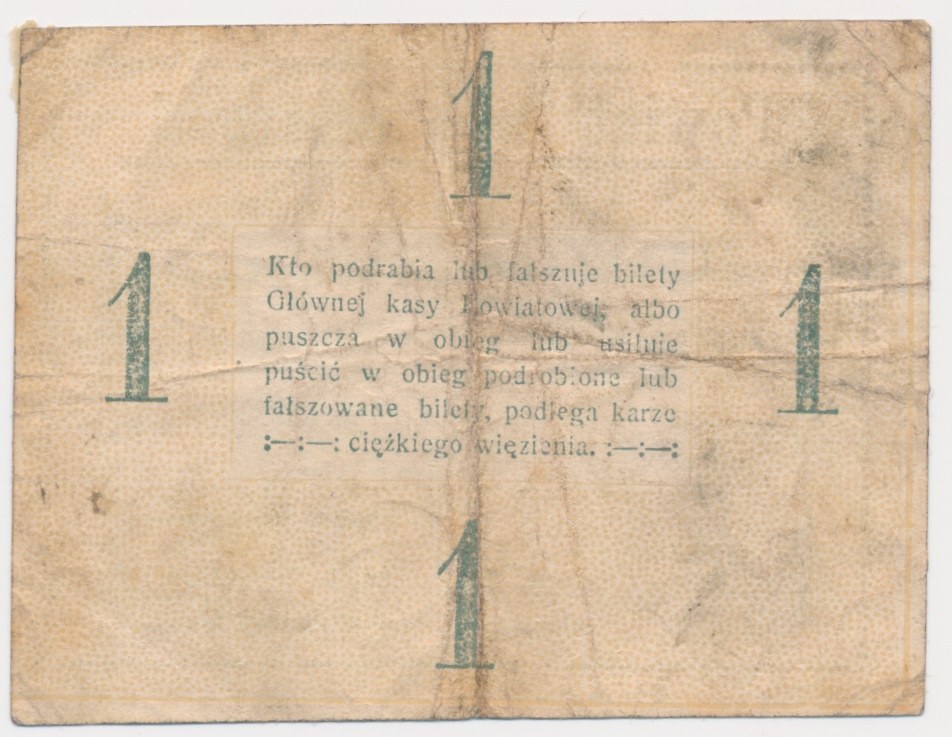 1
Kto podrabia lub fałszuje bilety
1 Głównej kasy Powiatowej, albo 1
puszcza w obieg lub usiłuje
puścić w obieg podrobione lub
fałszowane bilety, podlega karze
:—:—: ciężkiego więzienia. :—:—:
1